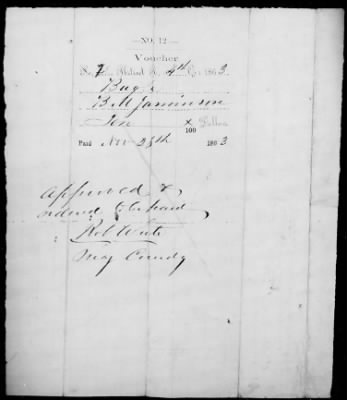 —NO. 12—
Voucher
No. 7 Abstract 4th Qr. 1863
Bug
B. M. Jamison
Ten x/100 Dollars
Paid Nov 28th 1863
Approved &
ordered to be paid
Rob White
Maj Comdg